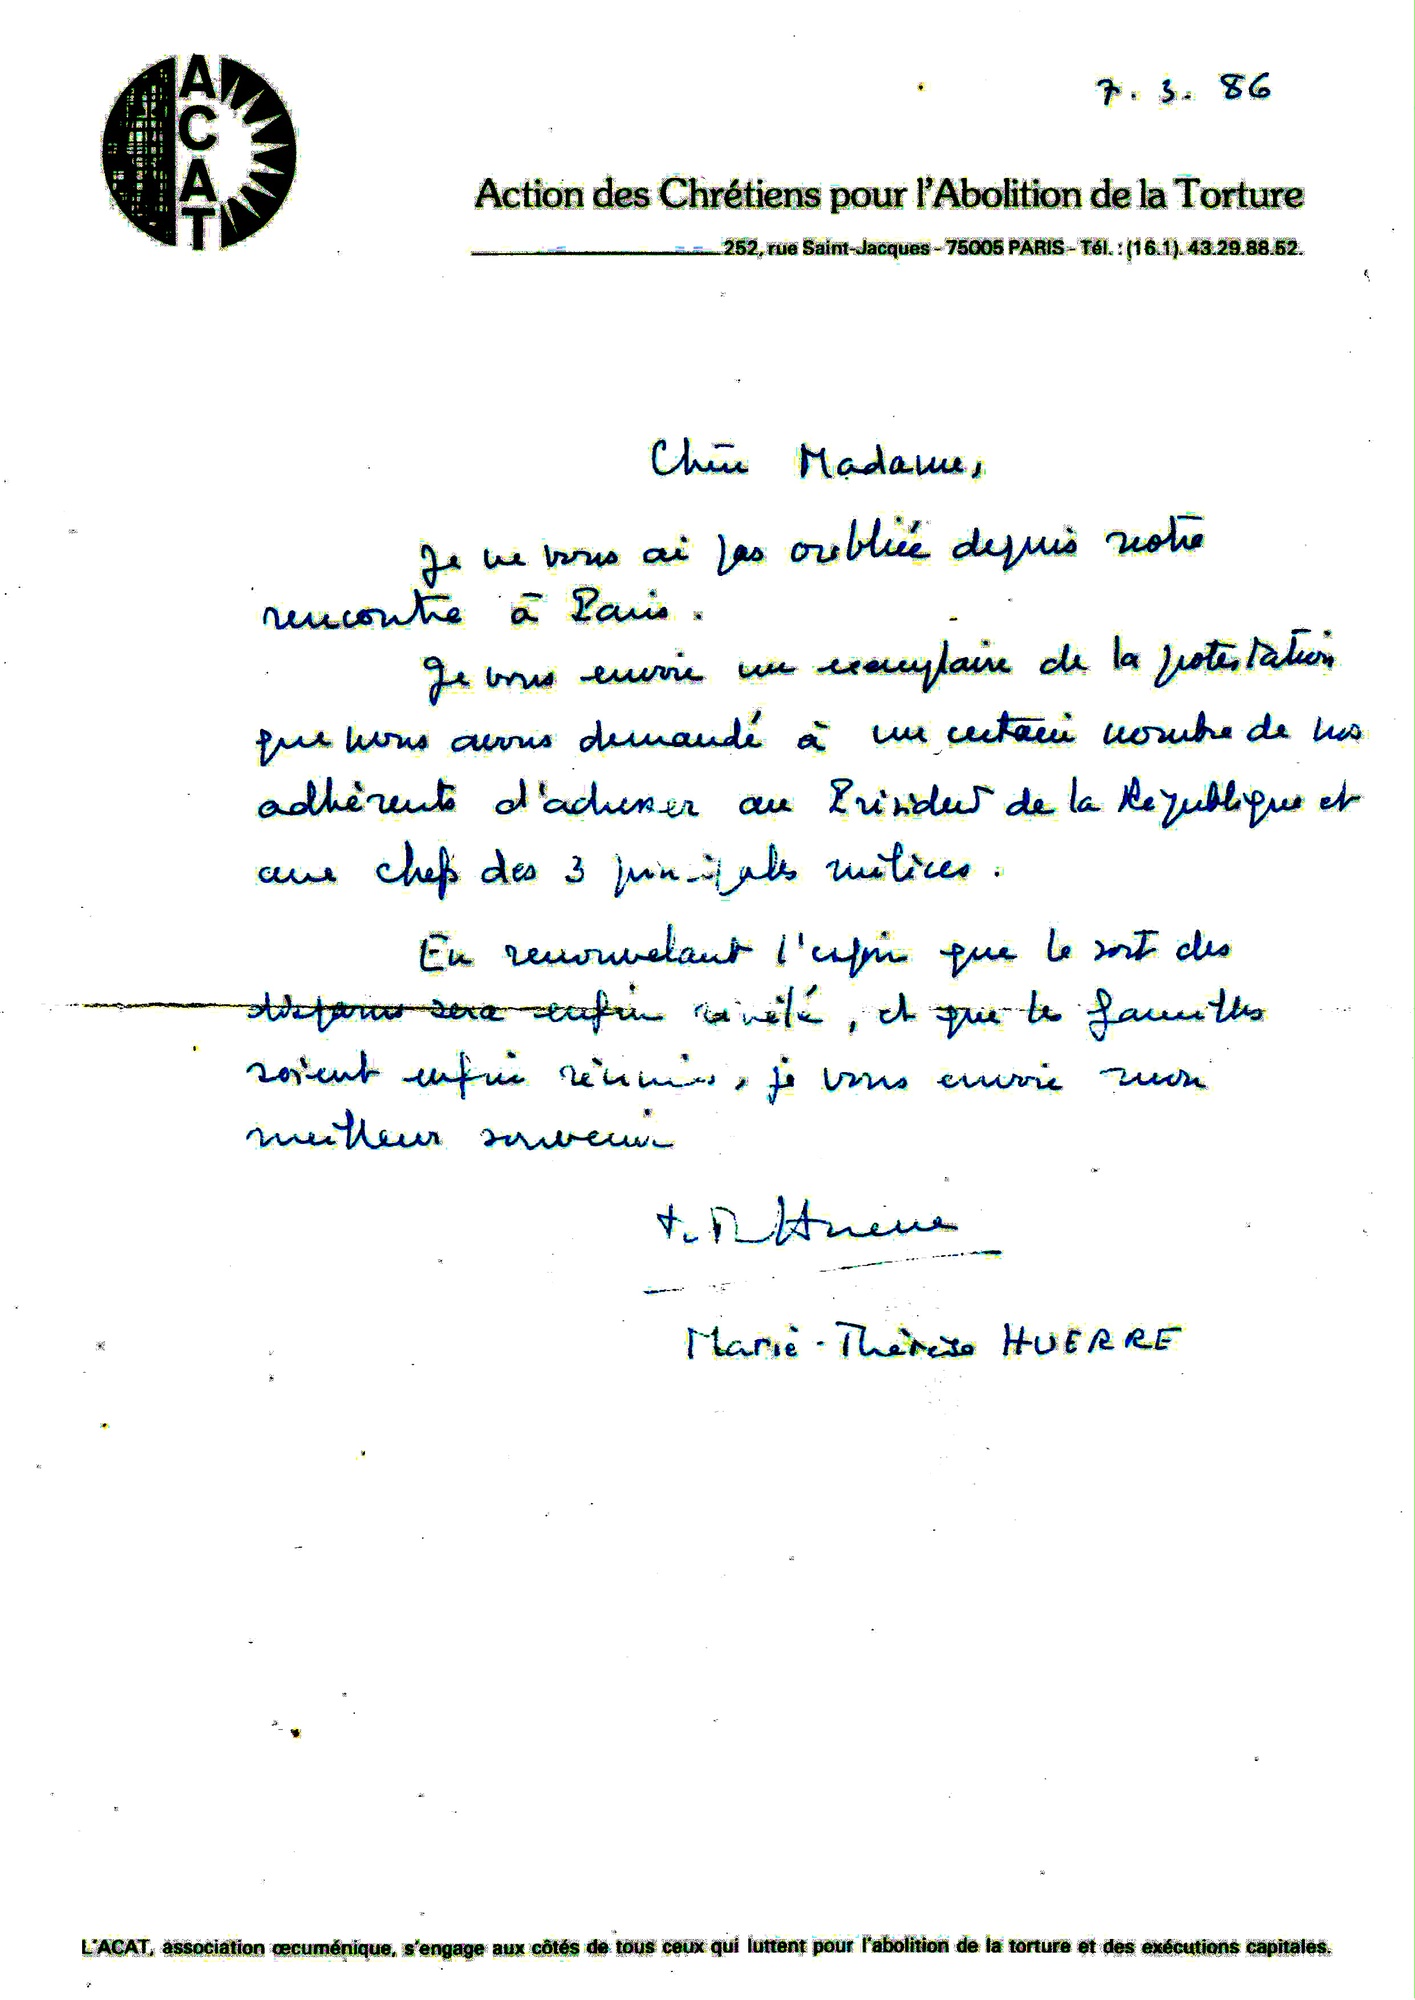 7. 3. 86
ACAT
Action des Chrétiens pour l'Abolition de la Torture
252, rue Saint-Jacques - 75005 PARIS - Tél. : (16.1). 43.29.88.52.
Chère Madame,
Je ne vous ai pas oubliée depuis notre
rencontre à Paris.
Je vous envoie un exemplaire de la protestation
que nous avons demandé à un certain nombre de nos
adhérents d'adresser au Président de la République et
aux chefs des 3 principales milices.
En renouvelant l'espoir que le sort des
disparus sera enfin révélé, et que les familles
soient enfin réunies, je vous envoie mon
meilleur souvenir
Huerre
Marie-Thérèse HUERRE
L'ACAT, association œcuménique, s'engage aux côtés de tous ceux qui luttent pour l'abolition de la torture et des exécutions capitales.